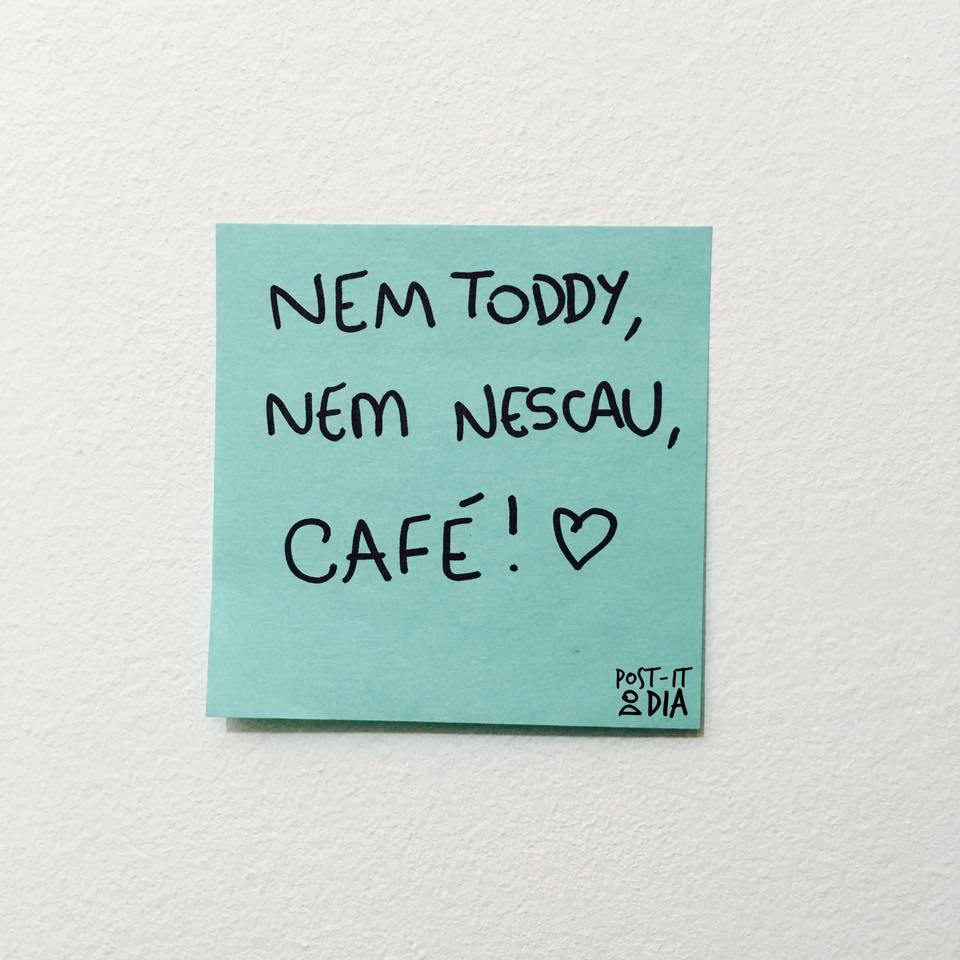 NEM TODDY,
NEM NESCAU,
CAFÉ! ♡
POST-IT
DO DIA